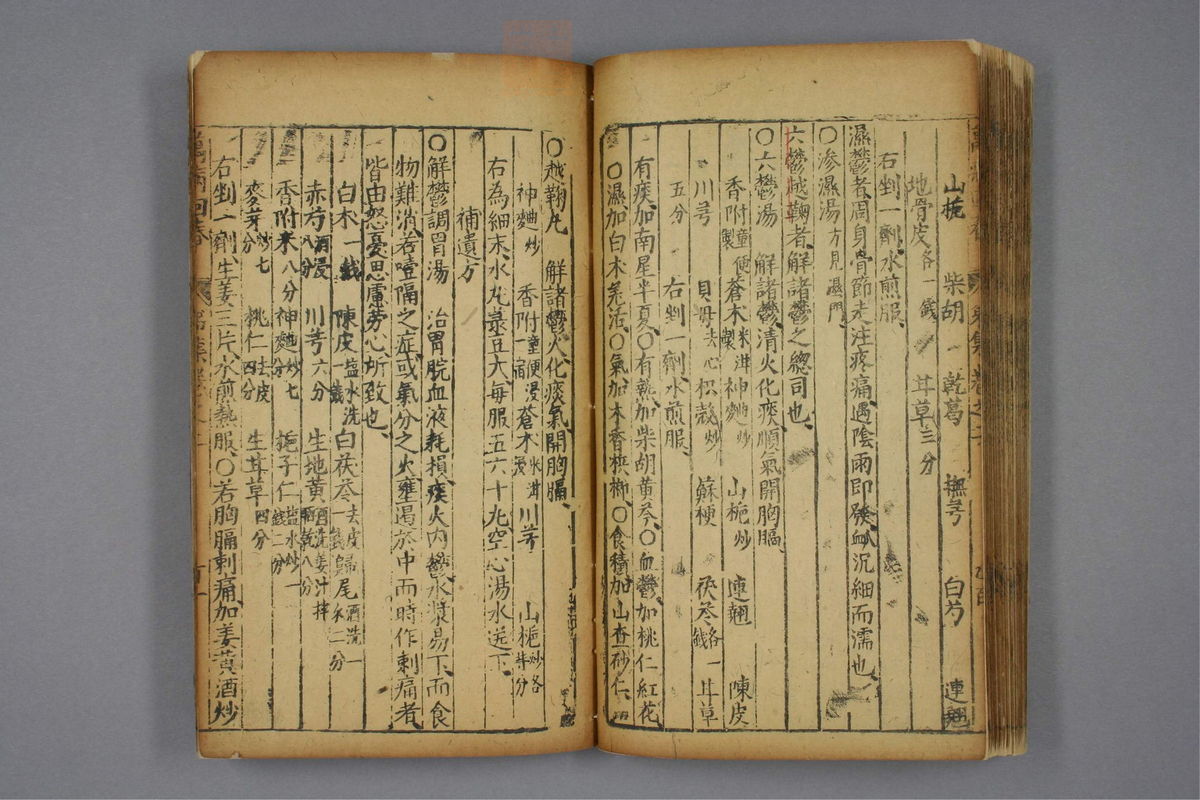 山梔 柴胡 乾葛 撫芎 白芍 連翹
地骨皮各一錢 甘草三分
右剉一劑水煎服
濕鬱者周身骨節走注疼痛遇陰雨即發脉沉細而濡也
○滲濕湯方見濕門
六鬱越鞠者解諸鬱之總司也
○六鬱湯 解諸鬱清火化痰順氣開胸膈
香附童便製 蒼术米泔製 神麯炒 山梔炒 連翹 陳皮
川芎 貝母去心 枳殼炒 蘇梗 茯苓各一錢 甘草
五分 右剉一劑水煎服
有痰加南星半夏○有熱加柴胡黃芩○血鬱加桃仁紅花
○濕加白术羌活○氣加木香梹榔○食積加山查砂仁
○越鞠丸 解諸鬱火化痰氣開胸膈
神麯炒 香附童便浸一宿 蒼术米泔浸 川芎 山梔炒各等分
右為細末水丸菉豆大每服五六十丸空心湯水送下
補遺方
○解鬱調胃湯 治胃脘血液耗損痰火內鬱水漿易下而食
物難消若噎隔之症或氣分之火壅遏於中而時作刺痛者
皆由怒憂思慮勞心所致也
白术一錢 陳皮塩水洗一錢 白茯苓去皮一錢 歸尾酒洗一錢二分
赤芍酒浸八分 川芎六分 生地黃酒洗姜汁拌晒乾八分
香附米八分 神麯炒七分 梔子仁塩水炒一錢二分
麥芽炒七分 桃仁去皮四分 生甘草四分
右剉一劑生姜三片水煎熱服○若胸膈刺痛加姜黃酒炒
萬病回春